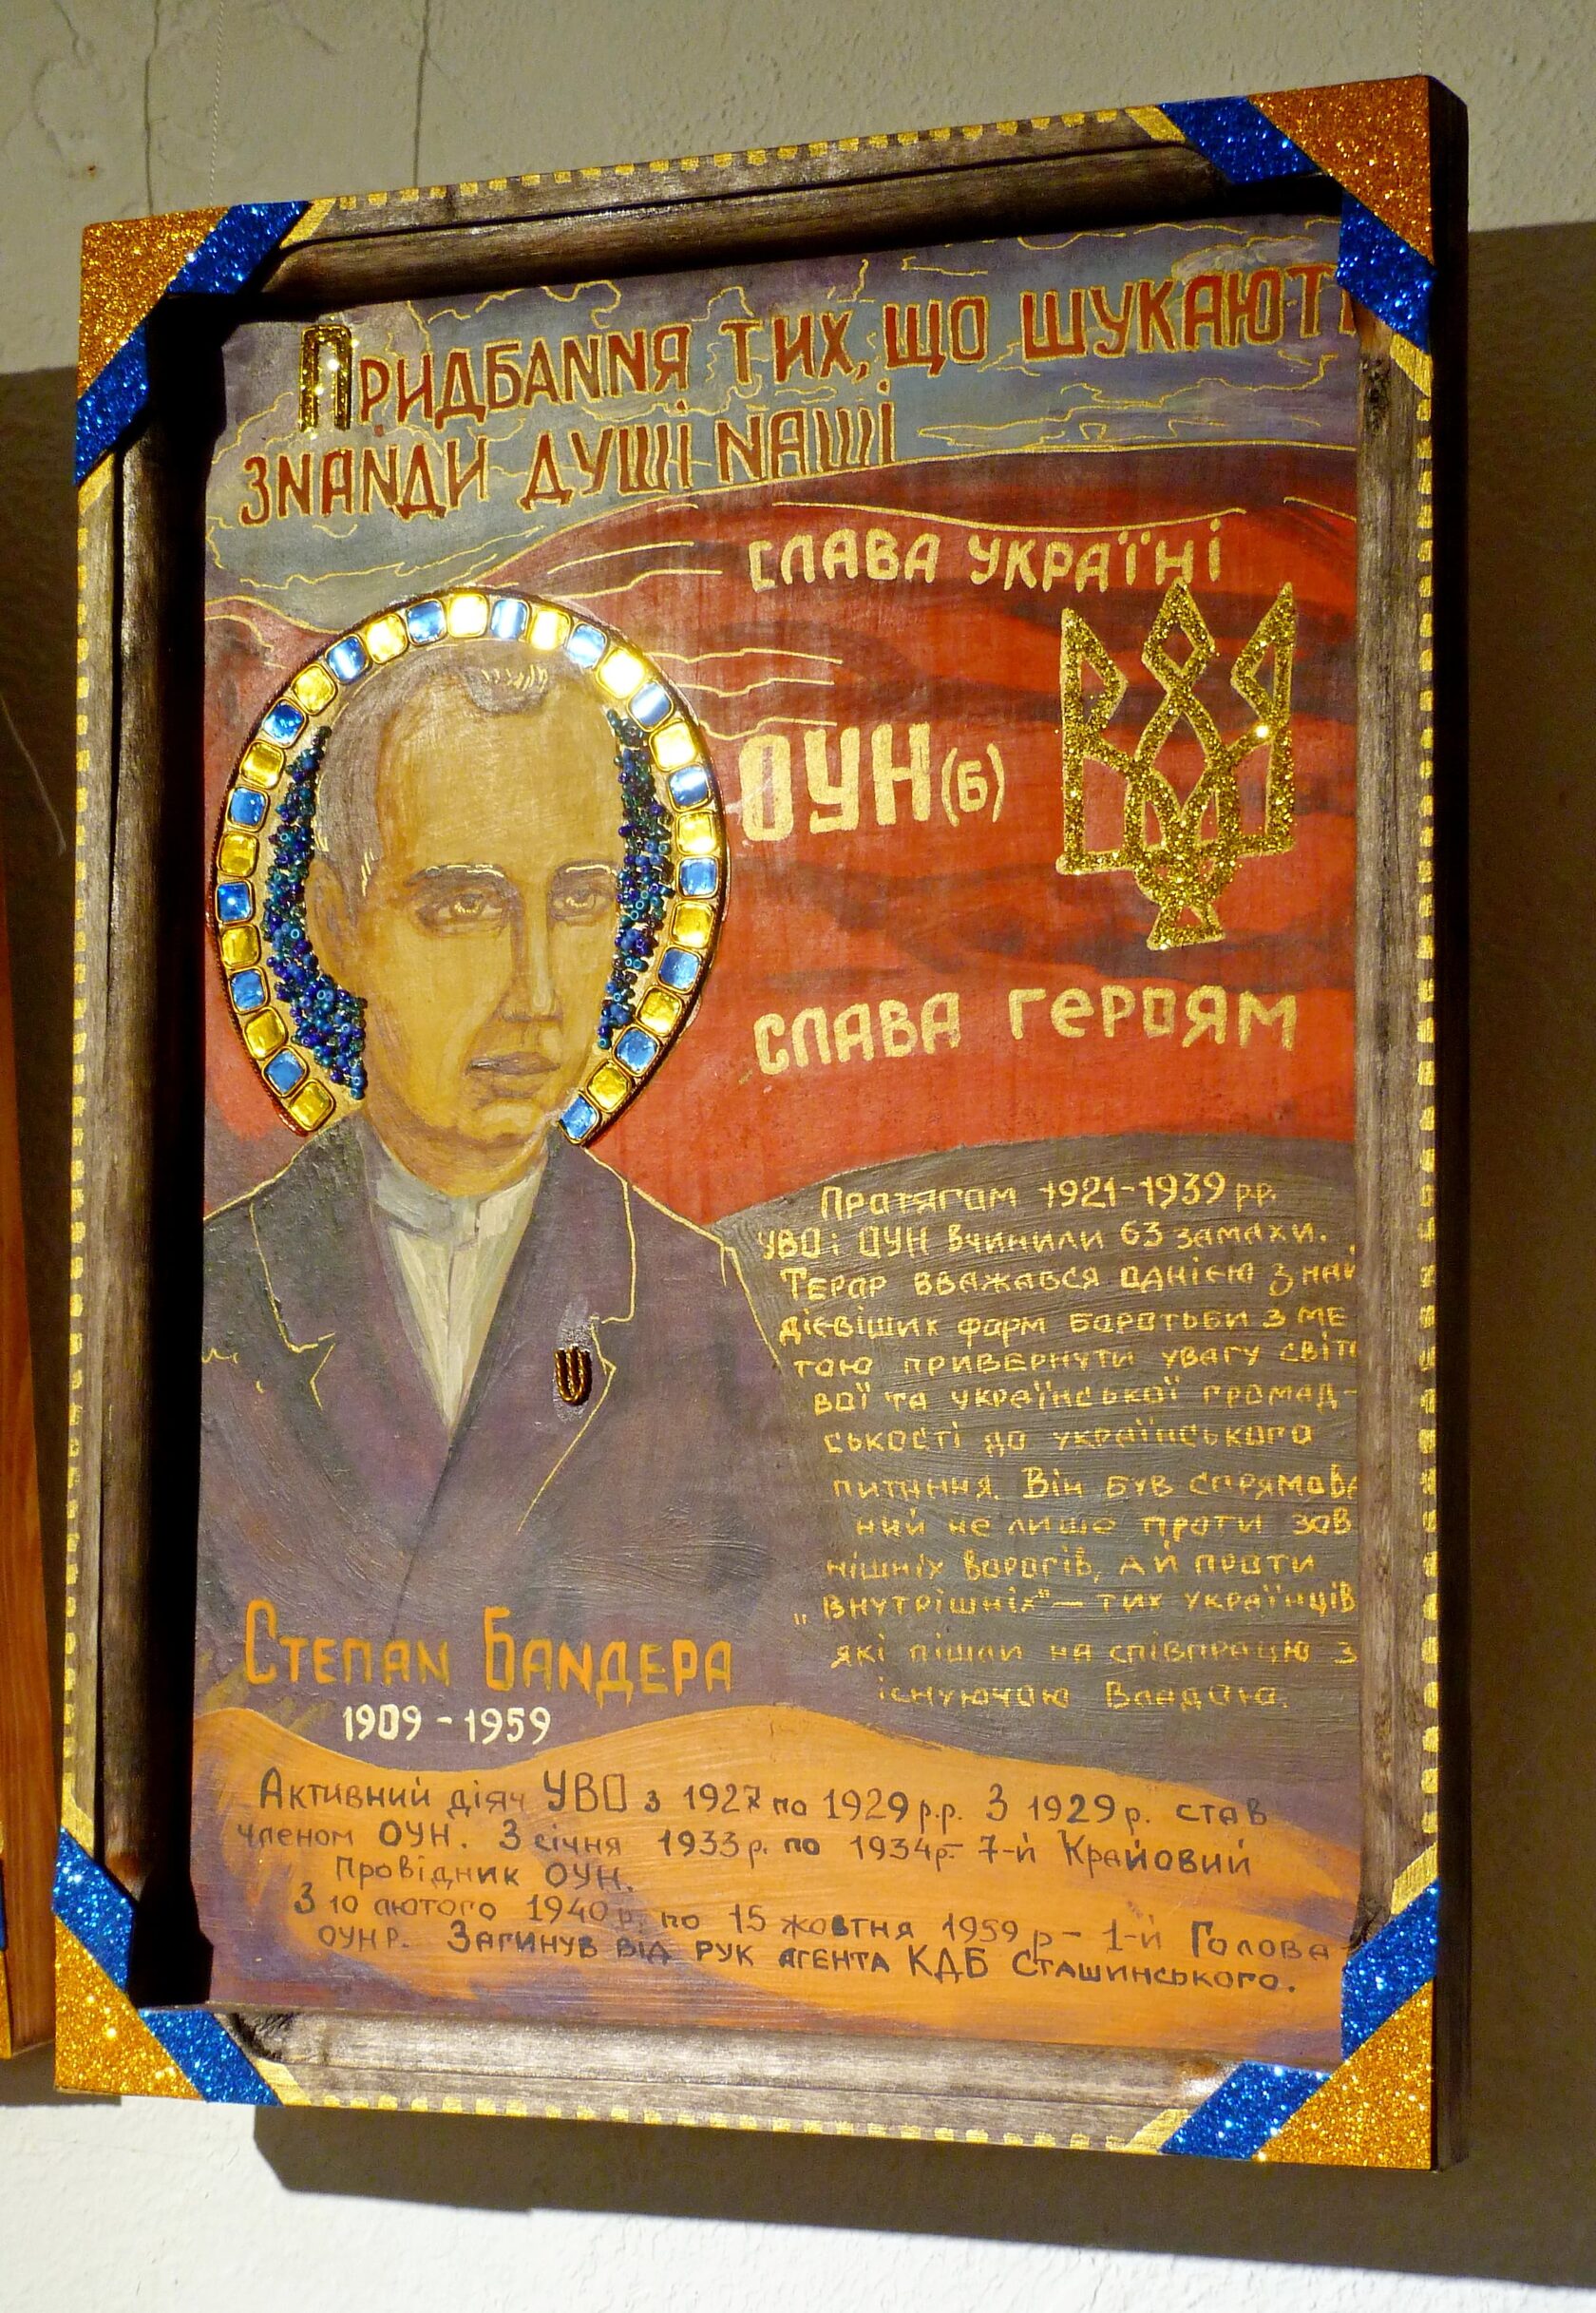 Придбання тих, що шукають
знайди душі наші
Слава Україні
ОУН(б)
Слава героям
Протягом 1921-1939 р.р.
УВО і ОУН вчинили 63 замахи.
Терор вважався однією з най
дієвіших форм боротьби з ме
тою привернути увагу світо
вої та української громад-
ськості до українського
питання. Він був спрямова
ний не лише проти зов
нішніх ворогів, а й проти
„внутрішніх" – тих українців
які пішли на співпрацю з
існуючою Владою.
Степан Бандера
1909 - 1959
Активний діяч УВО з 1927 по 1929 р.р. З 1929 р. став
членом ОУН. З січня 1933 р. по 1934 р. - 7-й Крайовий
Провідник ОУН.
З 10 лютого 1940 р. по 15 жовтня 1959 р - 1-й Голова
ОУНР. Загинув від рук агента КДБ Сташинського.